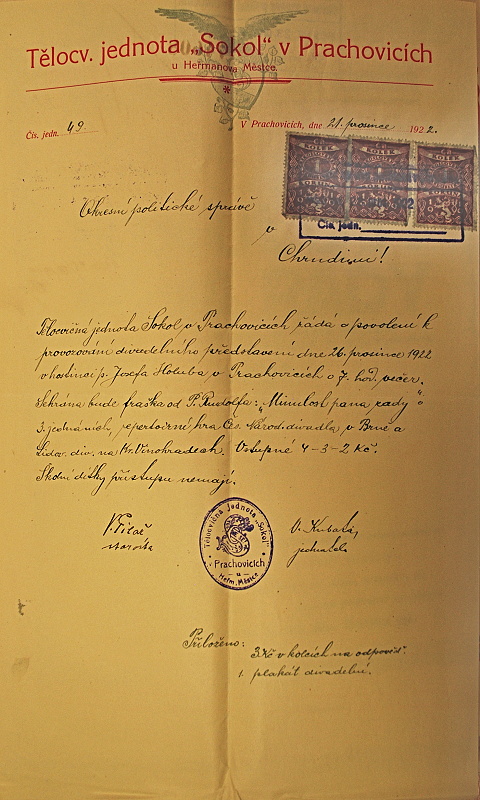 Tělocv. jednota „Sokol“ v Prachovicích
u Heřmanova Městce.
Čís. jedn. 49.
V Prachovicích, dne 21. prosince 1922.
KOLEK KOLEK KOLEK
Čís. jedn.
Okresní politické správě
v
Chrudimi!
Tělocvičná jednota Sokol v Prachovicích žádá o povolení k
provozování divadelního představení dne 26. prosince 1922
v hostinci p. Josefa Holuba v Prachovicích o 7. hod. večer.
Sehrána bude fraška od P. Rudolfa: „Minulost pana rady“ o
3 jednáních, repertoirní hra Čes. Národ. divadla v Brně a
Lidov. div. na Kr. Vinohradech. Vstupné 4-3-2 Kč.
Školní dítky přístupu nemají.
starosta
jednatel
Tělocvičná jednota „Sokol“
v Prachovicích
u
Heřm. Městce
Přiloženo: 3 Kč v kolcích na odpověď.
1. plakát divadelní.